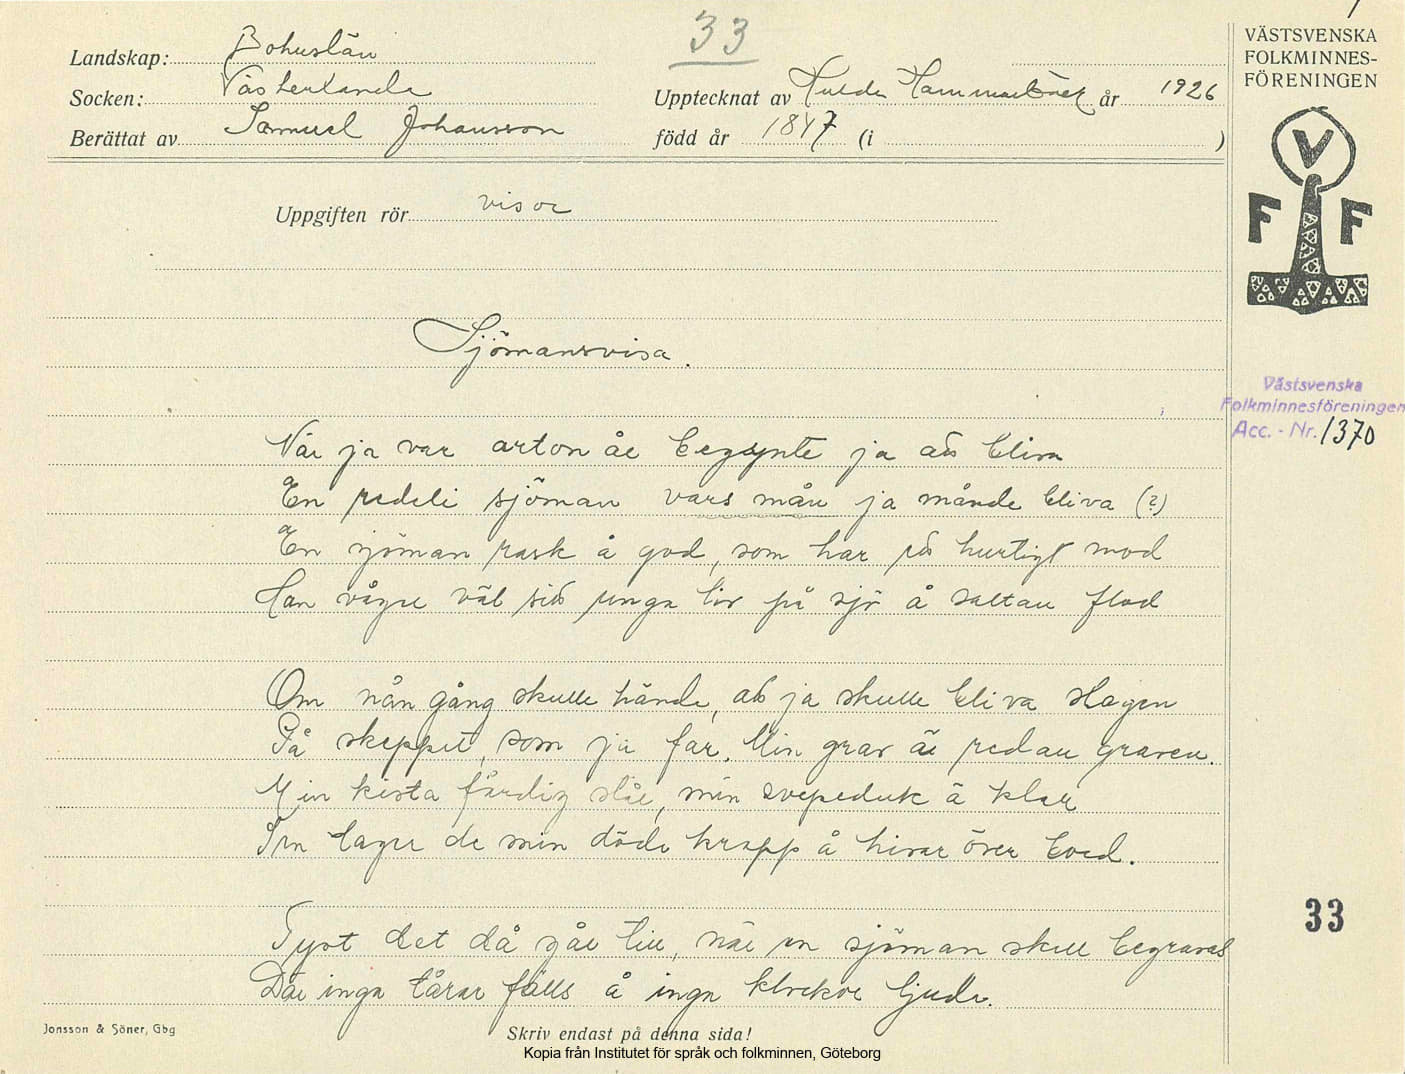 33
Landskap: Bohuslän
Socken: Västerlanda
Berättat av Samuel Johansson
Upptecknat av Hulda Hammarbäck år 1926
född år 1847 (i )
VÄSTSVENSKA
FOLKMINNES-
FÖRENINGEN
V
F F
Uppgiften rör visor
Sjömansvisa.
Västsvenska
Folkminnesföreningen
Acc. - Nr. 1370
När ja var arton år begynte ja att bliva
En redeli sjöman vars mån ja månde bliva (?)
En sjöman rask å god, som har ett hurtigt mod
Han vågar väl sitt unga liv på sjö å saltan flod
Om nån gång skulle hända, att ja skulle bliva slagen
På skeppet, som ja far. Min grav är redan graven.
Min kista färdig slår, min svepeduk ä klar
Sen tager de min döda kropp å hivar över bord.
Tyst det då går till, när en sjöman skall begravas
Där inga tårar fälls å inga klockor ljuda.
33
Jonsson & Söner, Gbg
Skriv endast på denna sida!
Kopia från Institutet för språk och folkminnen, Göteborg